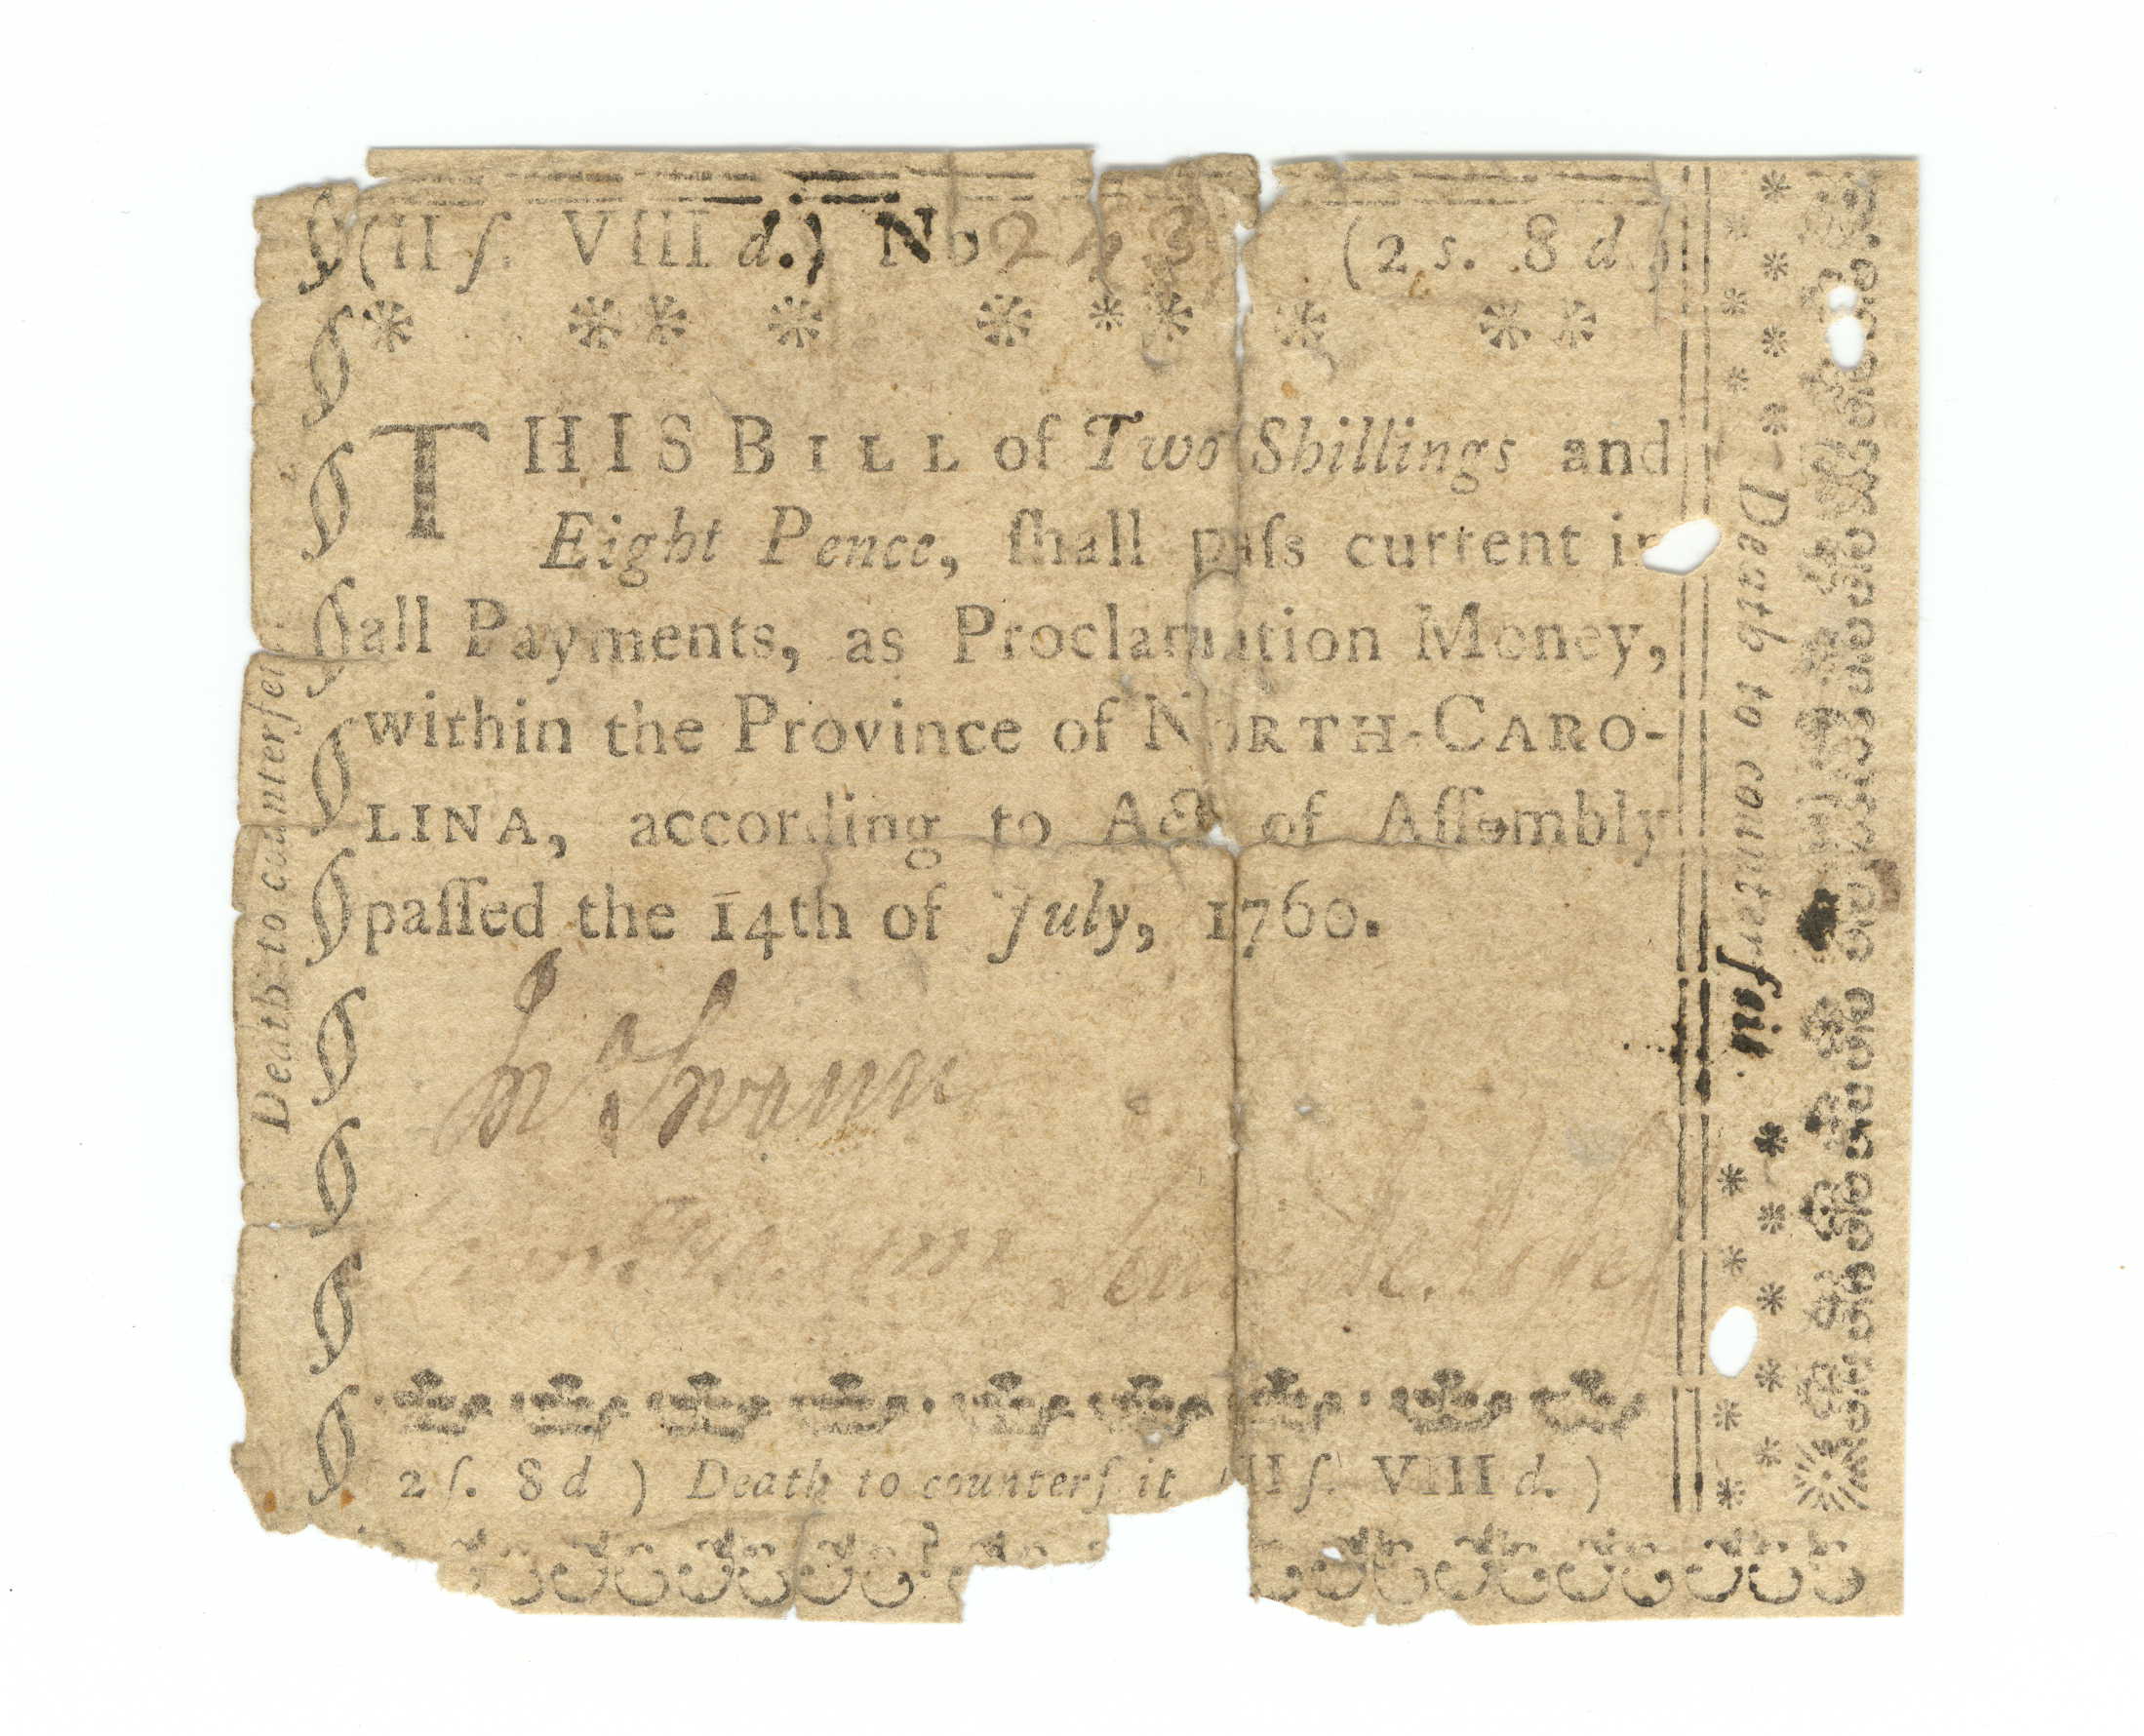 (II ſ. VIII d.) No (2 s. 8 d.)
THIS BILL of Two Shillings and
Eight Pence, ſhall paſs current in
all Payments, as Proclamation Money,
within the Province of NORTH-CARO-
LINA, according to Act of Aſſembly
paſſed the 14th of July, 1760.
Jno Swann
2 ſ. 8 d ) Death to counterf it II ſ. VIII d. )
Death to counterfei
Death to counterfait.